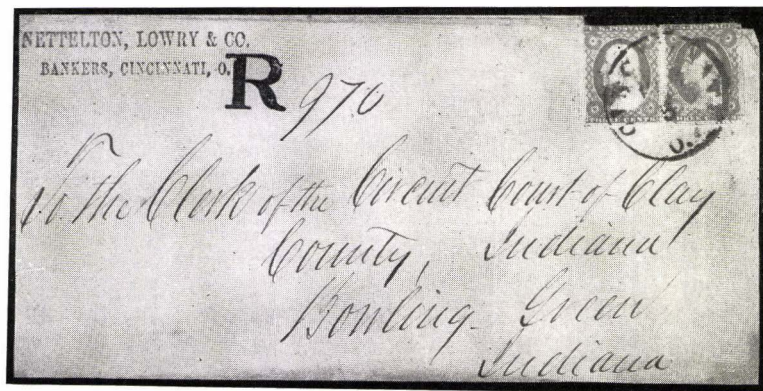 NETTELTON, LOWRY & CO.
BANKERS, CINCINNATI, O.
R
970
To. The Clerk of the Circuit Court of Clay
County, Indiana
Bowling Green
Indiana